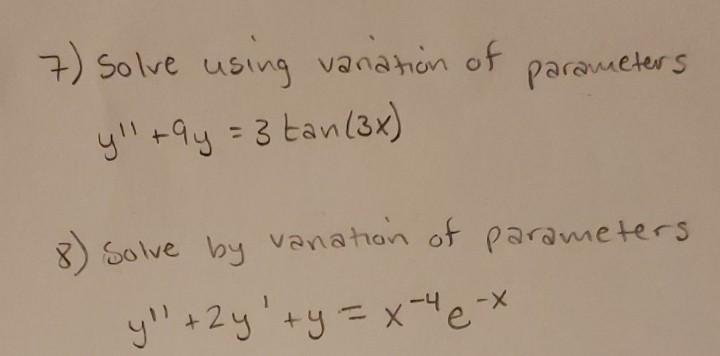 7) Solve using variation of parameters
y'' + 9y = 3 tan(3x)
8) Solve by variation of parameters
y'' + 2y' + y = x⁻⁴e⁻ˣ